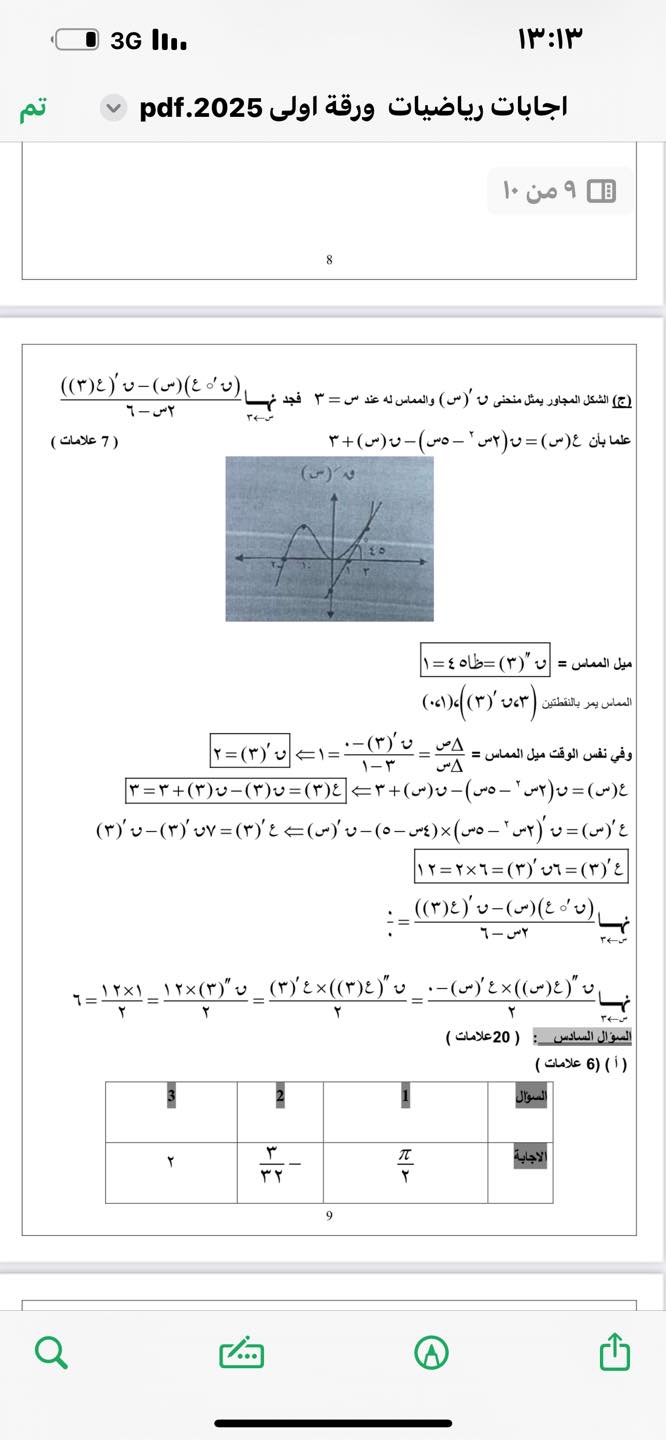 ١٣:١٣ 3G
اجابات رياضيات ورقة اولى 2025.pdf
تم
٩ من ١٠
8
(ج) الشكل المجاور يمثل منحنى ق′(س) والمماس له عند س = ٣ فجد نهــا س←٣ ((ق′∘ع)(س) − ق′(ع(٣))) / (٢س − ٦)
علما بأن ع(س) = ق(٢س² − ٥س) − ق(س) + ٣ ( 7 علامات )
ق′(س)
٤٥
٢- ١- ١ ٣
ميل المماس = ق″(٣) = ظا٤٥ = ١
المماس يمر بالنقطتين (٣، ق′(٣))، (١، ٠)
وفي نفس الوقت ميل المماس = Δص/Δس = (ق′(٣) − ٠)/(٣ − ١) = ١ ⇐ ق′(٣) = ٢
ع(س) = ق(٢س² − ٥س) − ق(س) + ٣ ⇐ ع(٣) = ق(٣) − ق(٣) + ٣ = ٣
ع′(س) = ق′(٢س² − ٥س) × (٤س − ٥) − ق′(س) ⇐ ع′(٣) = ٧ق′(٣) − ق′(٣)
ع′(٣) = ٦ق′(٣) = ٦ × ٢ = ١٢
نهــا س←٣ ((ق′∘ع)(س) − ق′(ع(٣))) / (٢س − ٦) = ٠/٠
نهــا س←٣ (ق″(ع(س)) × ع′(س) − ٠)/٢ = (ق″(ع(٣)) × ع′(٣))/٢ = (ق″(٣) × ١٢)/٢ = (١ × ١٢)/٢ = ٦
السؤال السادس : ( 20علامات )
( أ ) (6 علامات )
السؤال 1 2 3
الاجابة π/٢ −٣/٣٢ ٢
9